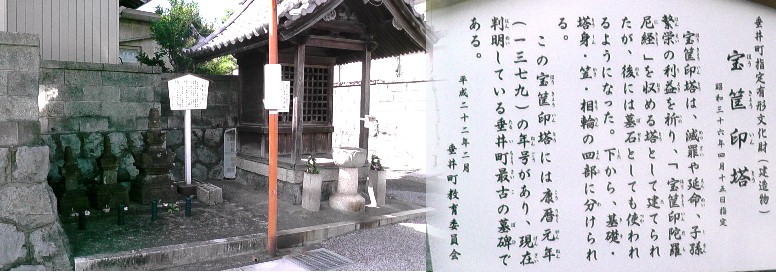 垂井町指定有形文化財(建造物)
昭和三十六年四月十五日指定
宝篋印塔
ほうきょういんとう
宝篋印塔は、滅罪や延命、子孫
繁栄の利益を祈り、「宝篋印陀羅
尼経」を収める塔として建てられ
たが、後には墓石としても使われ
るようになった。下から、基礎・
塔身・笠・相輪の四部に分けられ
る。
この宝篋印塔には康暦元年
(一三七九)の年号があり、現在
判明している垂井町最古の墓碑で
ある。
平成二十二年二月
垂井町教育委員会